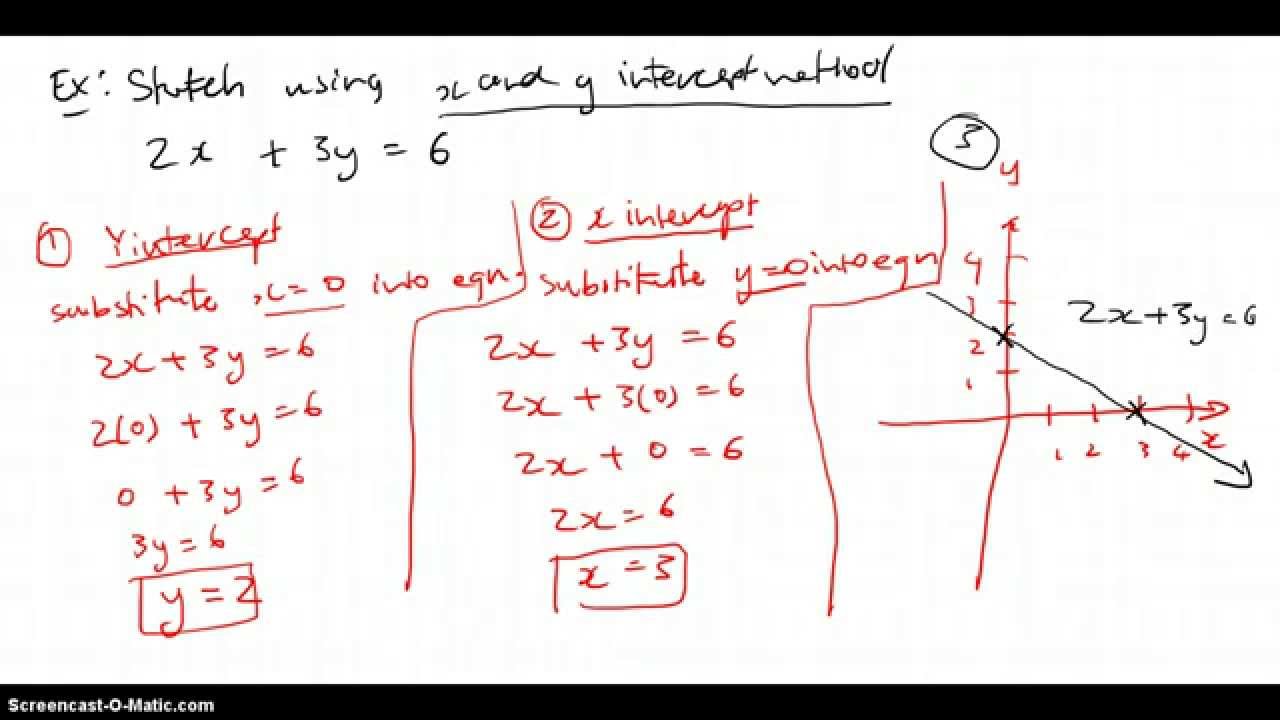 Ex: Sketch using x and y intercept method
2x + 3y = 6
① Y intercept
substitute x = 0 into eqn.
2x + 3y = 6
2(0) + 3y = 6
0 + 3y = 6
3y = 6
y = 2
② x intercept
substitute y = 0 into eqn
2x + 3y = 6
2x + 3(0) = 6
2x + 0 = 6
2x = 6
x = 3
③
y
4
3
2
1
2x + 3y = 6
1 2 3 4
x
Screencast-O-Matic.com